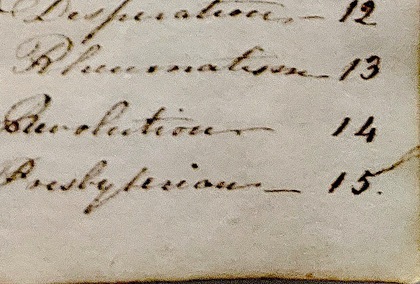 Desperation - 12
Rheumatism 13
Revolution - 14
Presbyterian - 15.